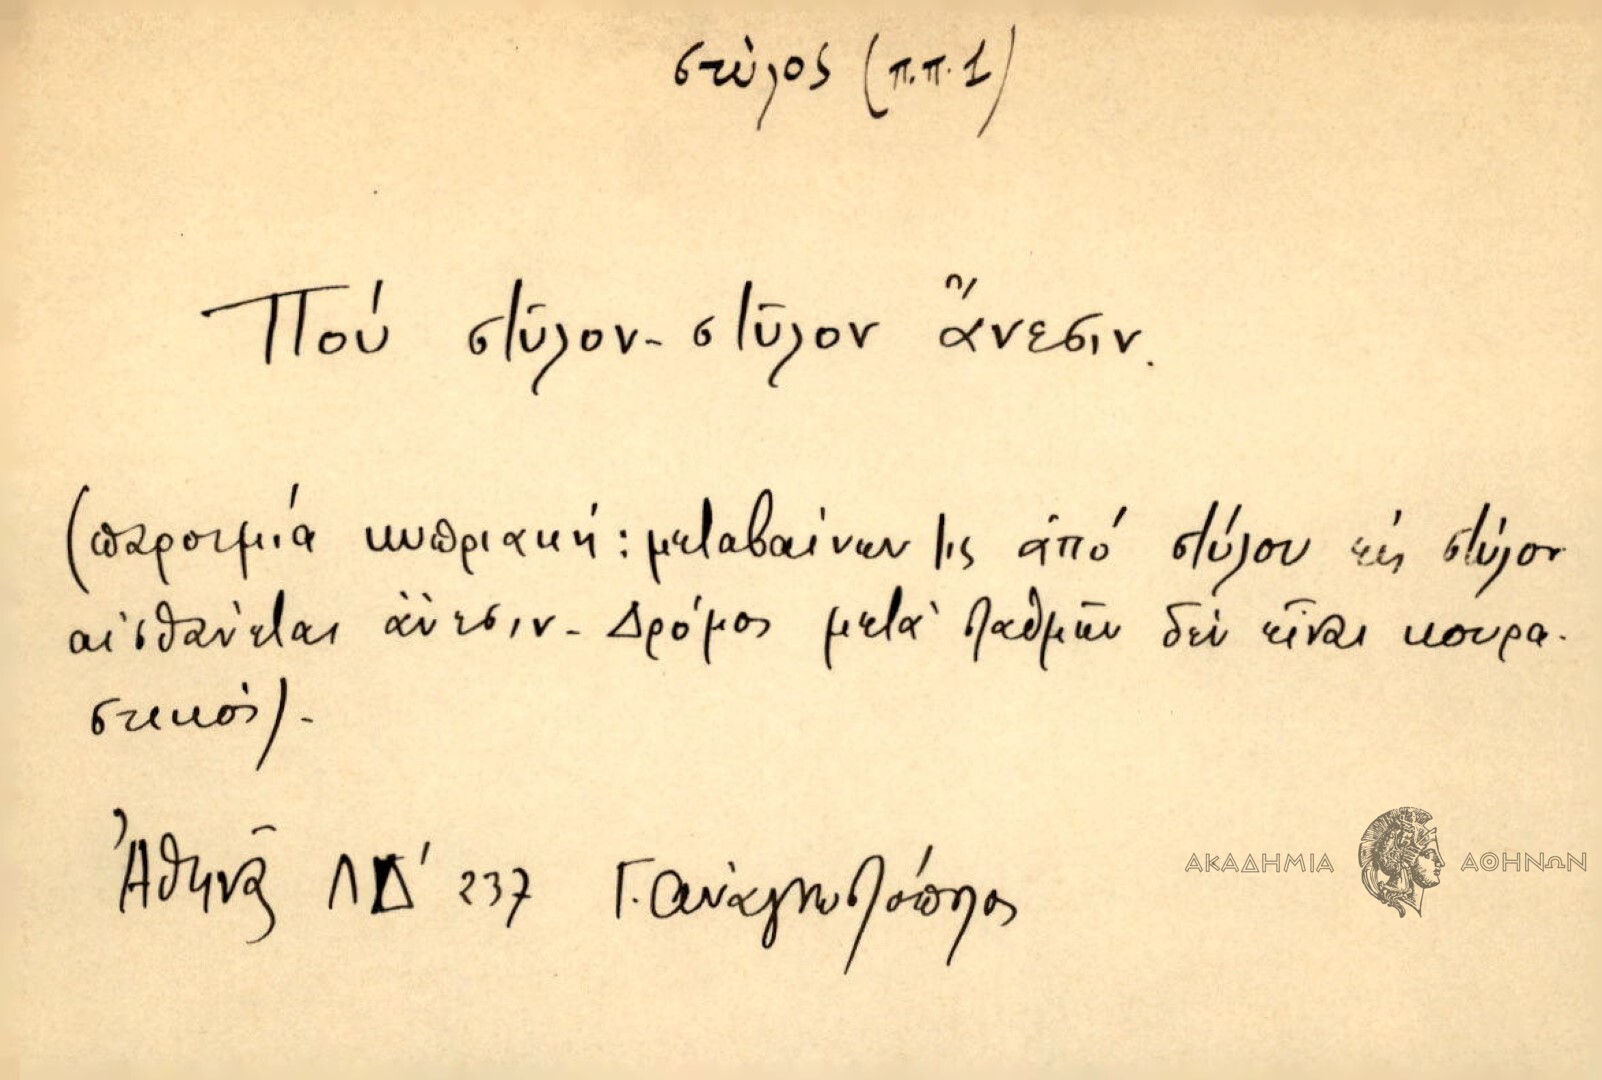 στύλος (π.π. 1)
Πού στῦλον-στῦλον ἄνεσιν.
(παροιμία κυπριακή: μεταβαίνων τις ἀπό στύλου εἰς στύλον
αἰσθάνεται ἄνεσιν - Δρόμος μετά σταθμῶν δέν εἶναι κουρα-
στικός).-
Ἀθηνᾶ ΛΔ' 237 Γ. Ἀναγνωστόπουλος
ΑΚΑΔΗΜΙΑ ΑΘΗΝΩΝ